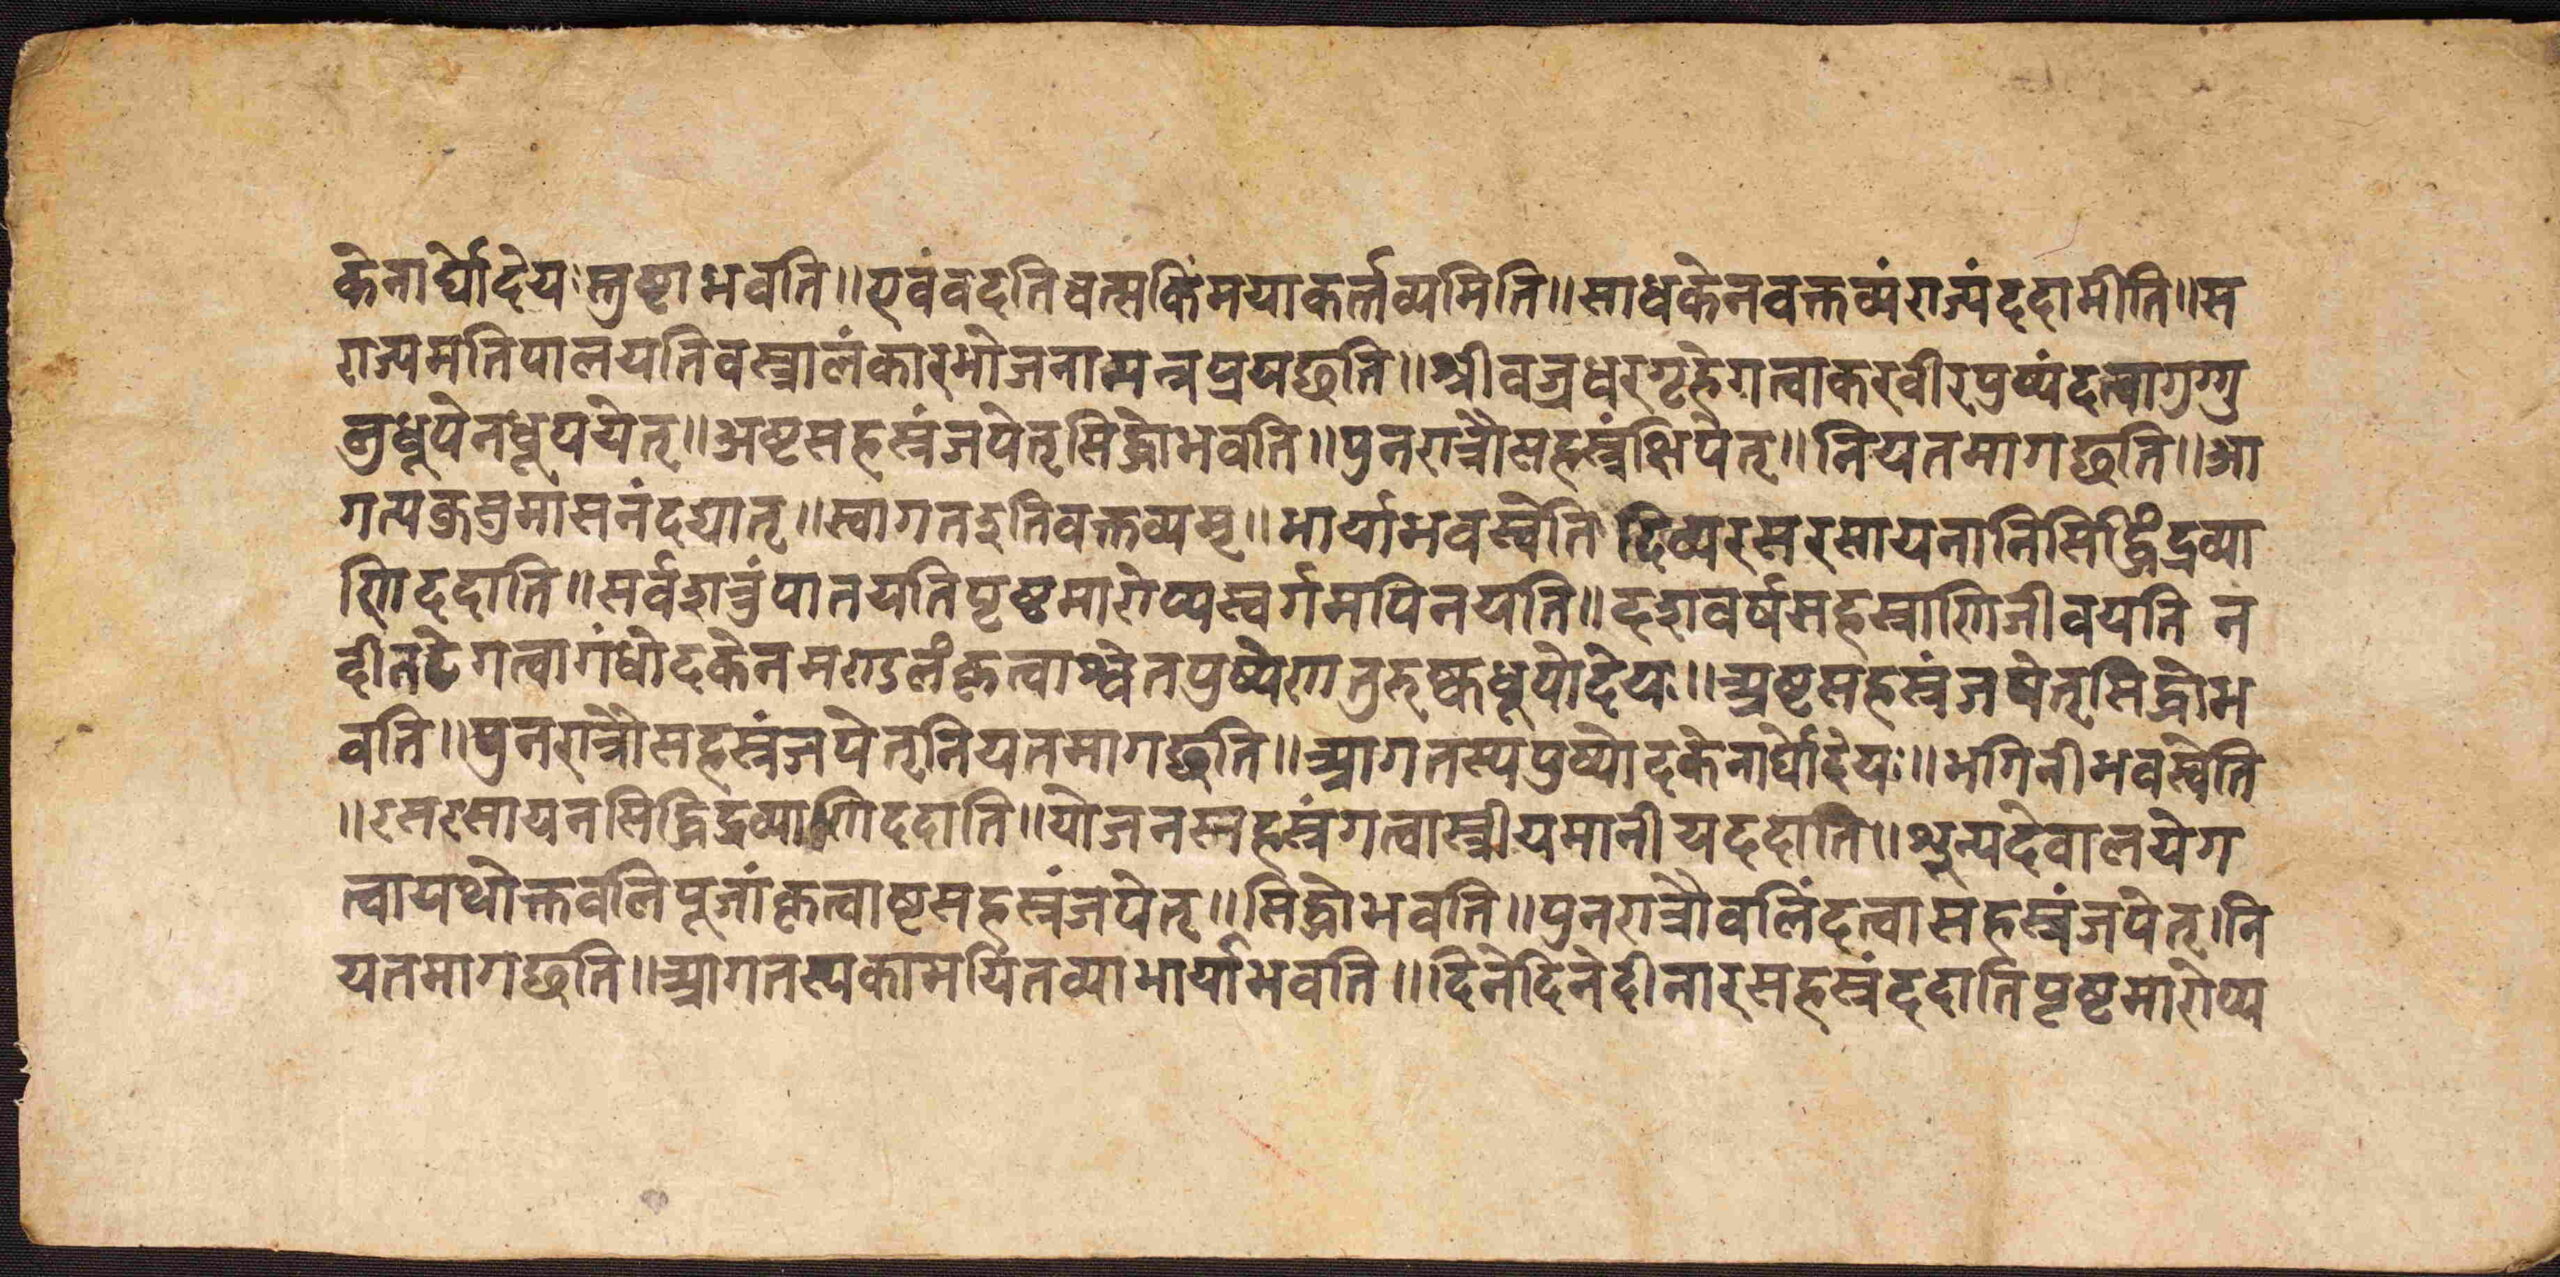 केनार्घोदेयःस्तुष्टाभवति॥एवंवदतिवत्सकिंमयाकर्त्तव्यमिति॥साधकेनवक्तव्यंराज्यंददामीति॥स
राज्यमतिपालयतिवस्त्रालंकारभोजनात्यन्नप्रयछति॥श्रीवज्रधरगृहेगत्वाकरवीरपुष्पंदत्वागुग्गु
लुधूपेनधूपयेत्॥अष्टसहस्रंजपेत्सिद्धोभवति॥पुनरात्रौसहस्रंक्षिपेत्॥नियतमागछति॥आ
गत्यकुसुमासनंदद्यात्॥स्वागतइतिवक्तव्यम्॥भार्याभवस्वेति दिव्यरसरसायनानिसिद्धिंद्रव्या
णिददाति॥सर्वशत्रुंपातयतिपृष्ठमारोप्यस्वर्गमपिनयति॥दशवर्षसहस्राणिजीवयति न
दीतटेगत्वागंधोदकेनमण्डलंकृत्वाश्वेतपुष्पेणतुरुष्कधूपोदेयः॥अष्टसहस्रंजपेत्सिद्धोभ
वति॥पुनरात्रौसहस्रंजपेत्नियतमागछति॥आगतस्यपुष्पोदकेनार्घोदेयः॥भगिनीभवस्वेति
॥रसरसायनसिद्धिद्रव्याणिददाति॥योजनसहस्रंगत्वास्त्रीयमानीयददाति॥शून्यदेवालयेग
त्वायथोक्तवलिपूजांकृत्वाष्टसहस्रंजपेत्॥सिद्धोभवति॥पुनरात्रौवलिंदत्वासहस्रंजपेत्।नि
यतमागछति॥आगतस्यकामयितव्याभार्याभवति॥दिनेदिनेदीनारसहस्रंददातिपृष्टमारोप्य